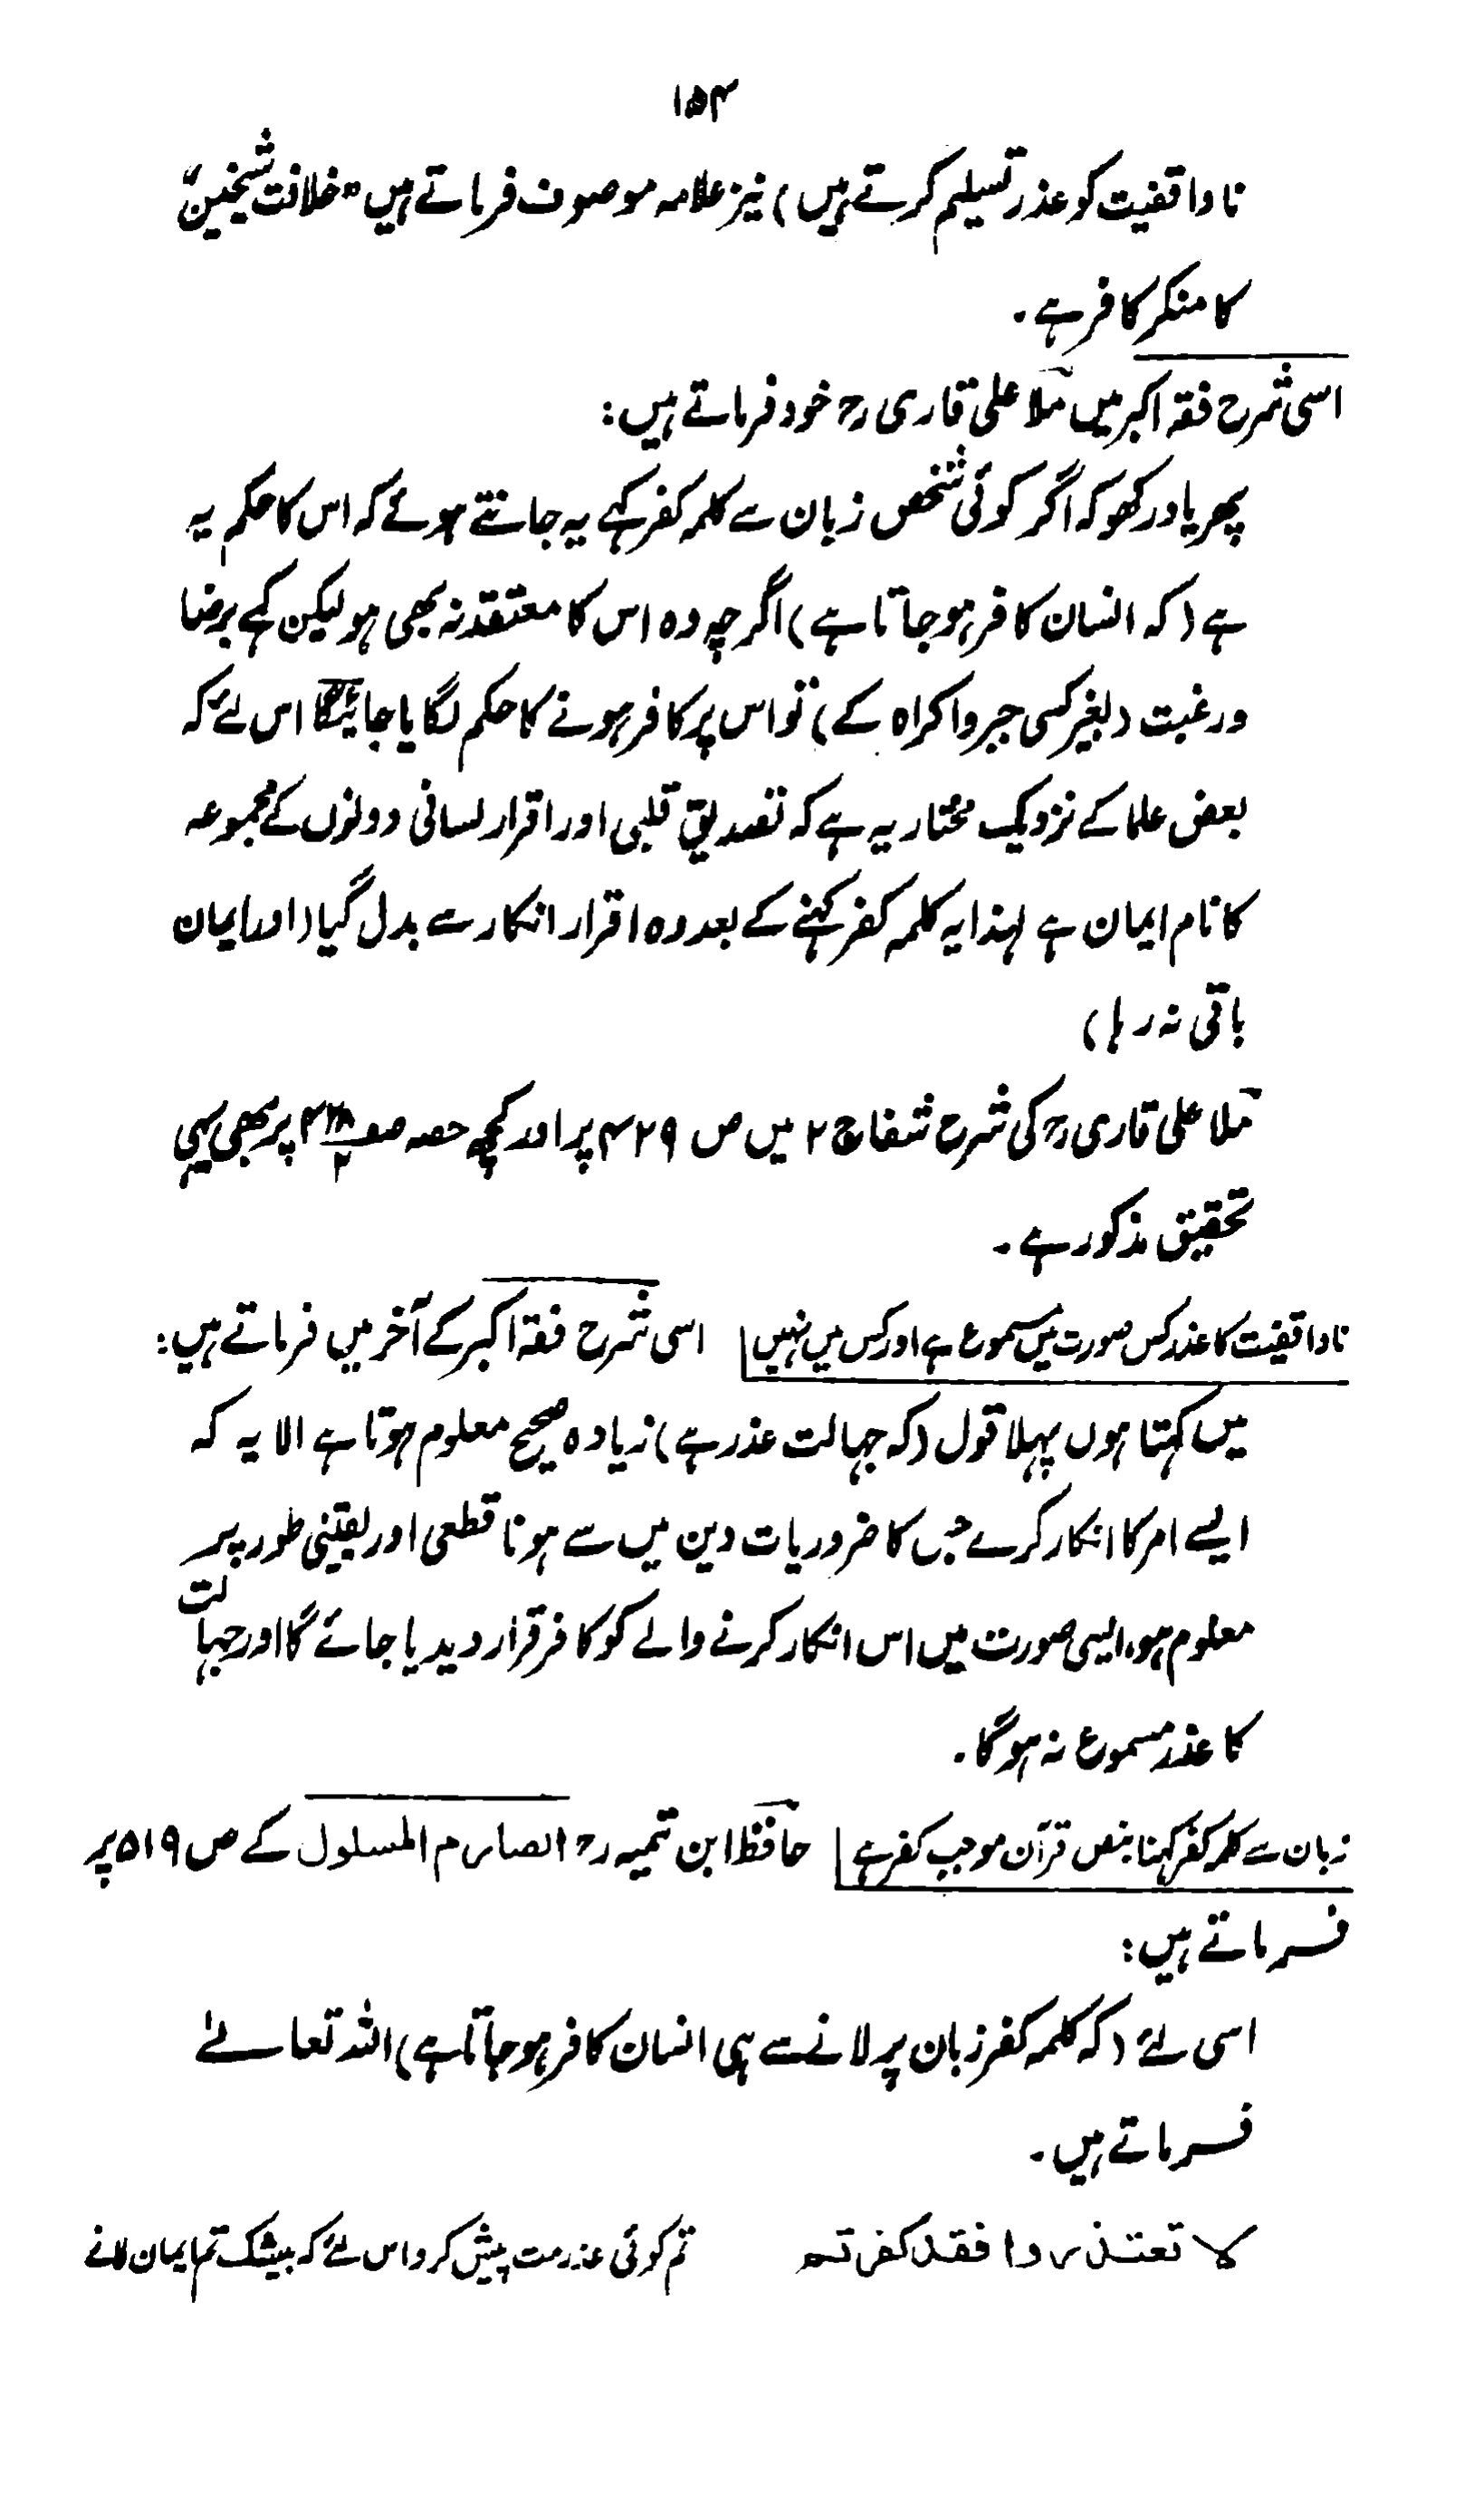 ۱۵۴
ناواقفیت کو عذر تسلیم کرتے ہیں) نیز علامہ موصوف فرماتے ہیں "خلافت شیخین"
کا منکر کافر ہے۔
اسی شرح فقہ اکبر میں ملا علی قاری رح خود فرماتے ہیں:
پھر یاد رکھو کہ اگر کوئی شخص زبان سے کلمہ کفر کہے یہ جانتے ہوئے کہ اس کا حکم یہ
ہے (کہ انسان کافر ہو جاتا ہے) اگرچہ وہ اس کا معتقد نہ بھی ہو لیکن کہے برضا
ورغبت (بغیر کسی جبر واکراہ کے) تو اس پر کافر ہونے کا حکم لگایا جائیگا اس لئے کہ
بعض علما کے نزدیک مختار یہ ہے کہ تصدیق قلبی اور اقرار لسانی دونوں کے مجموعہ
کا نام ایمان ہے لہٰذا یہ کلمہ کفر کہنے کے بعد وہ اقرار انکار سے بدل گیا (اور ایمان
باقی نہ رہا)
ملا علی قاری رح کی شرح شفا ج ۲ میں ص ۴۲۹ پر اور کچھ حصہ پر بھی یہی
تحقیق مذکور ہے۔
ناواقفیت کا عذر کس صورت میں مسموع ہے اور کس میں نہیں اسی شرح فقہ اکبر کے آخر میں فرماتے ہیں:
میں کہتا ہوں پہلا قول (کہ جہالت عذر ہے) زیادہ صحیح معلوم ہوتا ہے الا یہ کہ
ایسے امر کا انکار کرے جس کا ضروریات دین میں سے ہونا قطعی اور یقینی طور پر
معلوم ہو، ایسی صورت میں اس انکار کرنے والے کو کافر قرار دیدیا جائے گا اور جہالت
کا عذر مسموع نہ ہوگا۔
زبان سے کلمہ کفر کہنا بنص قرآن موجب کفر ہے حافظ ابن تیمیہ رح الصارم المسلول کے ص ۵۱۹ پر
فرماتے ہیں:
اسی لئے (کہ کلمہ کفر زبان پر لانے سے ہی انسان کافر ہو جاتا ہے) اللہ تعالےٰ
فرماتے ہیں۔
لا تعتذروا فقد کفرتم تم کوئی عذر مت پیش کرو اس لئے کہ بیشک تم ایمان لانے